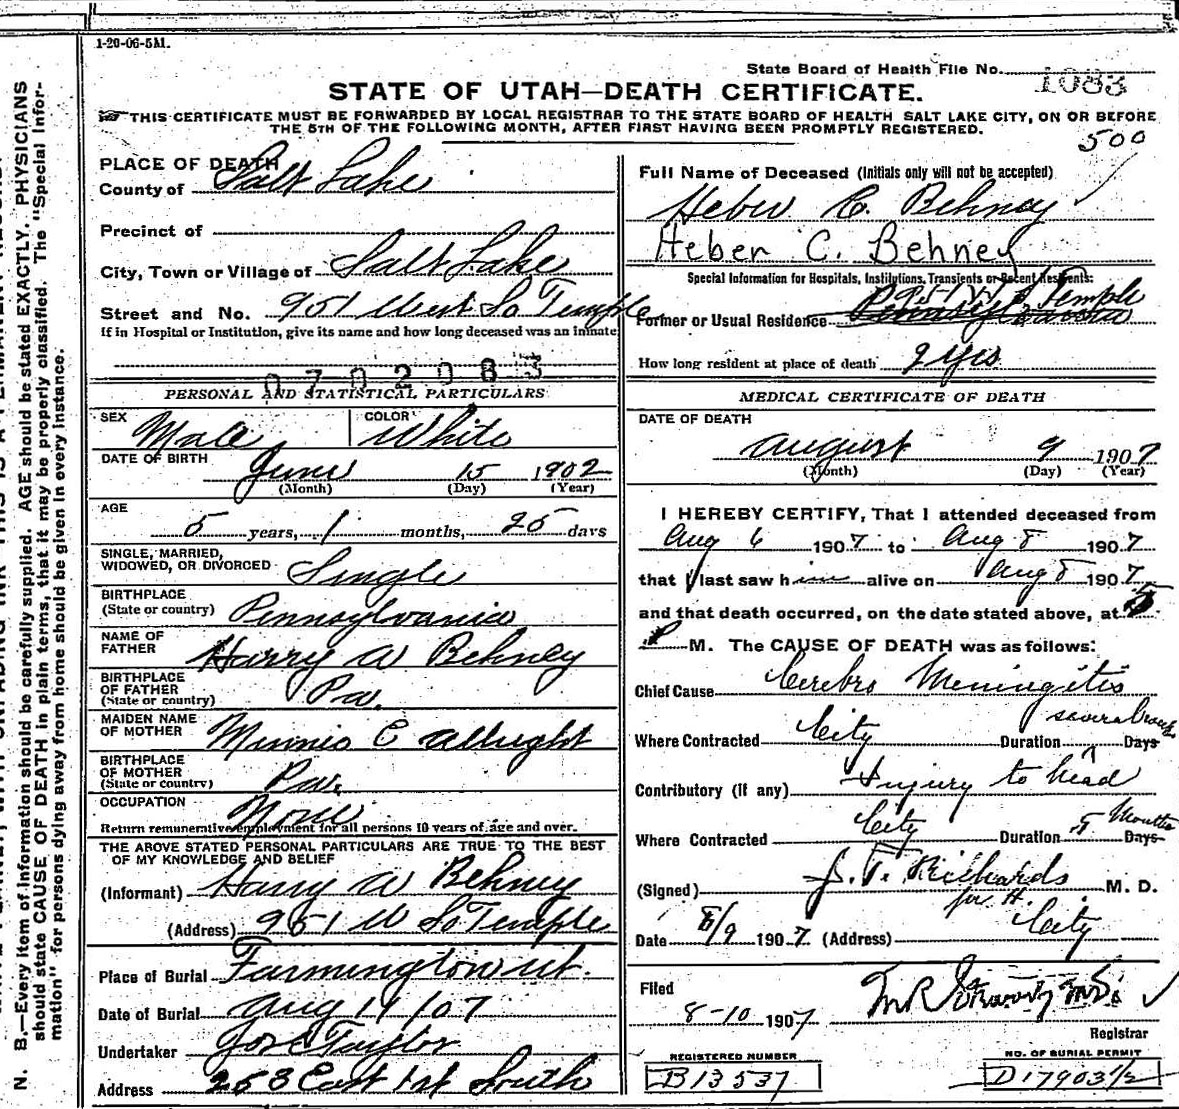 1-20-06-5M.
State Board of Health File No. 1083
STATE OF UTAH—DEATH CERTIFICATE.
THIS CERTIFICATE MUST BE FORWARDED BY LOCAL REGISTRAR TO THE STATE BOARD OF HEALTH SALT LAKE CITY, ON OR BEFORE
THE 5TH OF THE FOLLOWING MONTH, AFTER FIRST HAVING BEEN PROMPTLY REGISTERED.
500
PLACE OF DEATH
County of Salt Lake
Precinct of
City, Town or Village of Salt Lake
Street and No. 951 West So Temple
If in Hospital or Institution, give its name and how long deceased was an inmate
0702083
PERSONAL AND STATISTICAL PARTICULARS
SEX Male COLOR White
DATE OF BIRTH June 15 1902
(Month) (Day) (Year)
AGE
5 years, 1 months, 25 days
SINGLE, MARRIED,
WIDOWED, OR DIVORCED Single
BIRTHPLACE
(State or country) Pennsylvania
NAME OF
FATHER Harry W Behney
BIRTHPLACE
OF FATHER
(State or country) Pa.
MAIDEN NAME
OF MOTHER Minnie E Albright
BIRTHPLACE
OF MOTHER
(State or country) Pa.
OCCUPATION None
Return remunerative employment for all persons 10 years of age and over.
THE ABOVE STATED PERSONAL PARTICULARS ARE TRUE TO THE BEST
OF MY KNOWLEDGE AND BELIEF
(Informant) Harry W Behney
(Address) 951 W So Temple
Place of Burial Farmington Ut.
Date of Burial Aug 11/07
Undertaker Jos E Taylor
Address 253 East 1st South
Full Name of Deceased (Initials only will not be accepted)
Heber C. Behney
Heber C. Behney
Special Information for Hospitals, Institutions, Transients or Recent Residents:
951 W S Temple
Former or Usual Residence Pennsylvania
How long resident at place of death 2 yrs
MEDICAL CERTIFICATE OF DEATH
DATE OF DEATH
August 9 1907
(Month) (Day) (Year)
I HEREBY CERTIFY, That I attended deceased from
Aug 6 1907 to Aug 8 1907
that I last saw him alive on Aug 8 1907
and that death occurred, on the date stated above, at 5
P M. The CAUSE OF DEATH was as follows:
Chief Cause Cerebro Meningitis
several
Where Contracted City Duration Days
Contributory (if any) Injury to head
Where Contracted City Duration 5 Months Days
(Signed) J. T. Richards M. D.
Date 8/9 1907 (Address) City
Filed
8-10 1907
Registrar
REGISTERED NUMBER
B13537
NO. OF BURIAL PERMIT
D17903 1/2
N. B.—Every item of information should be carefully supplied. AGE should be stated EXACTLY. PHYSICIANS
should state CAUSE OF DEATH in plain terms, that it may be properly classified. The "Special Infor-
mation" for persons dying away from home should be given in every instance.